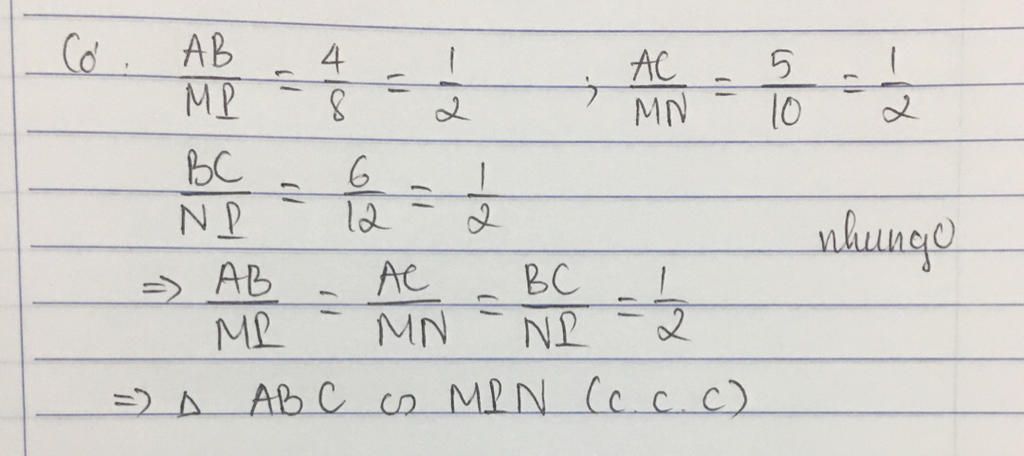 Có. AB/MP = 4/8 = 1/2 ; AC/MN = 5/10 = 1/2
BC/NP = 6/12 = 1/2
nhungo
=> AB/MP = AC/MN = BC/NP = 1/2
=> Δ ABC ∽ MPN (c.c.c)